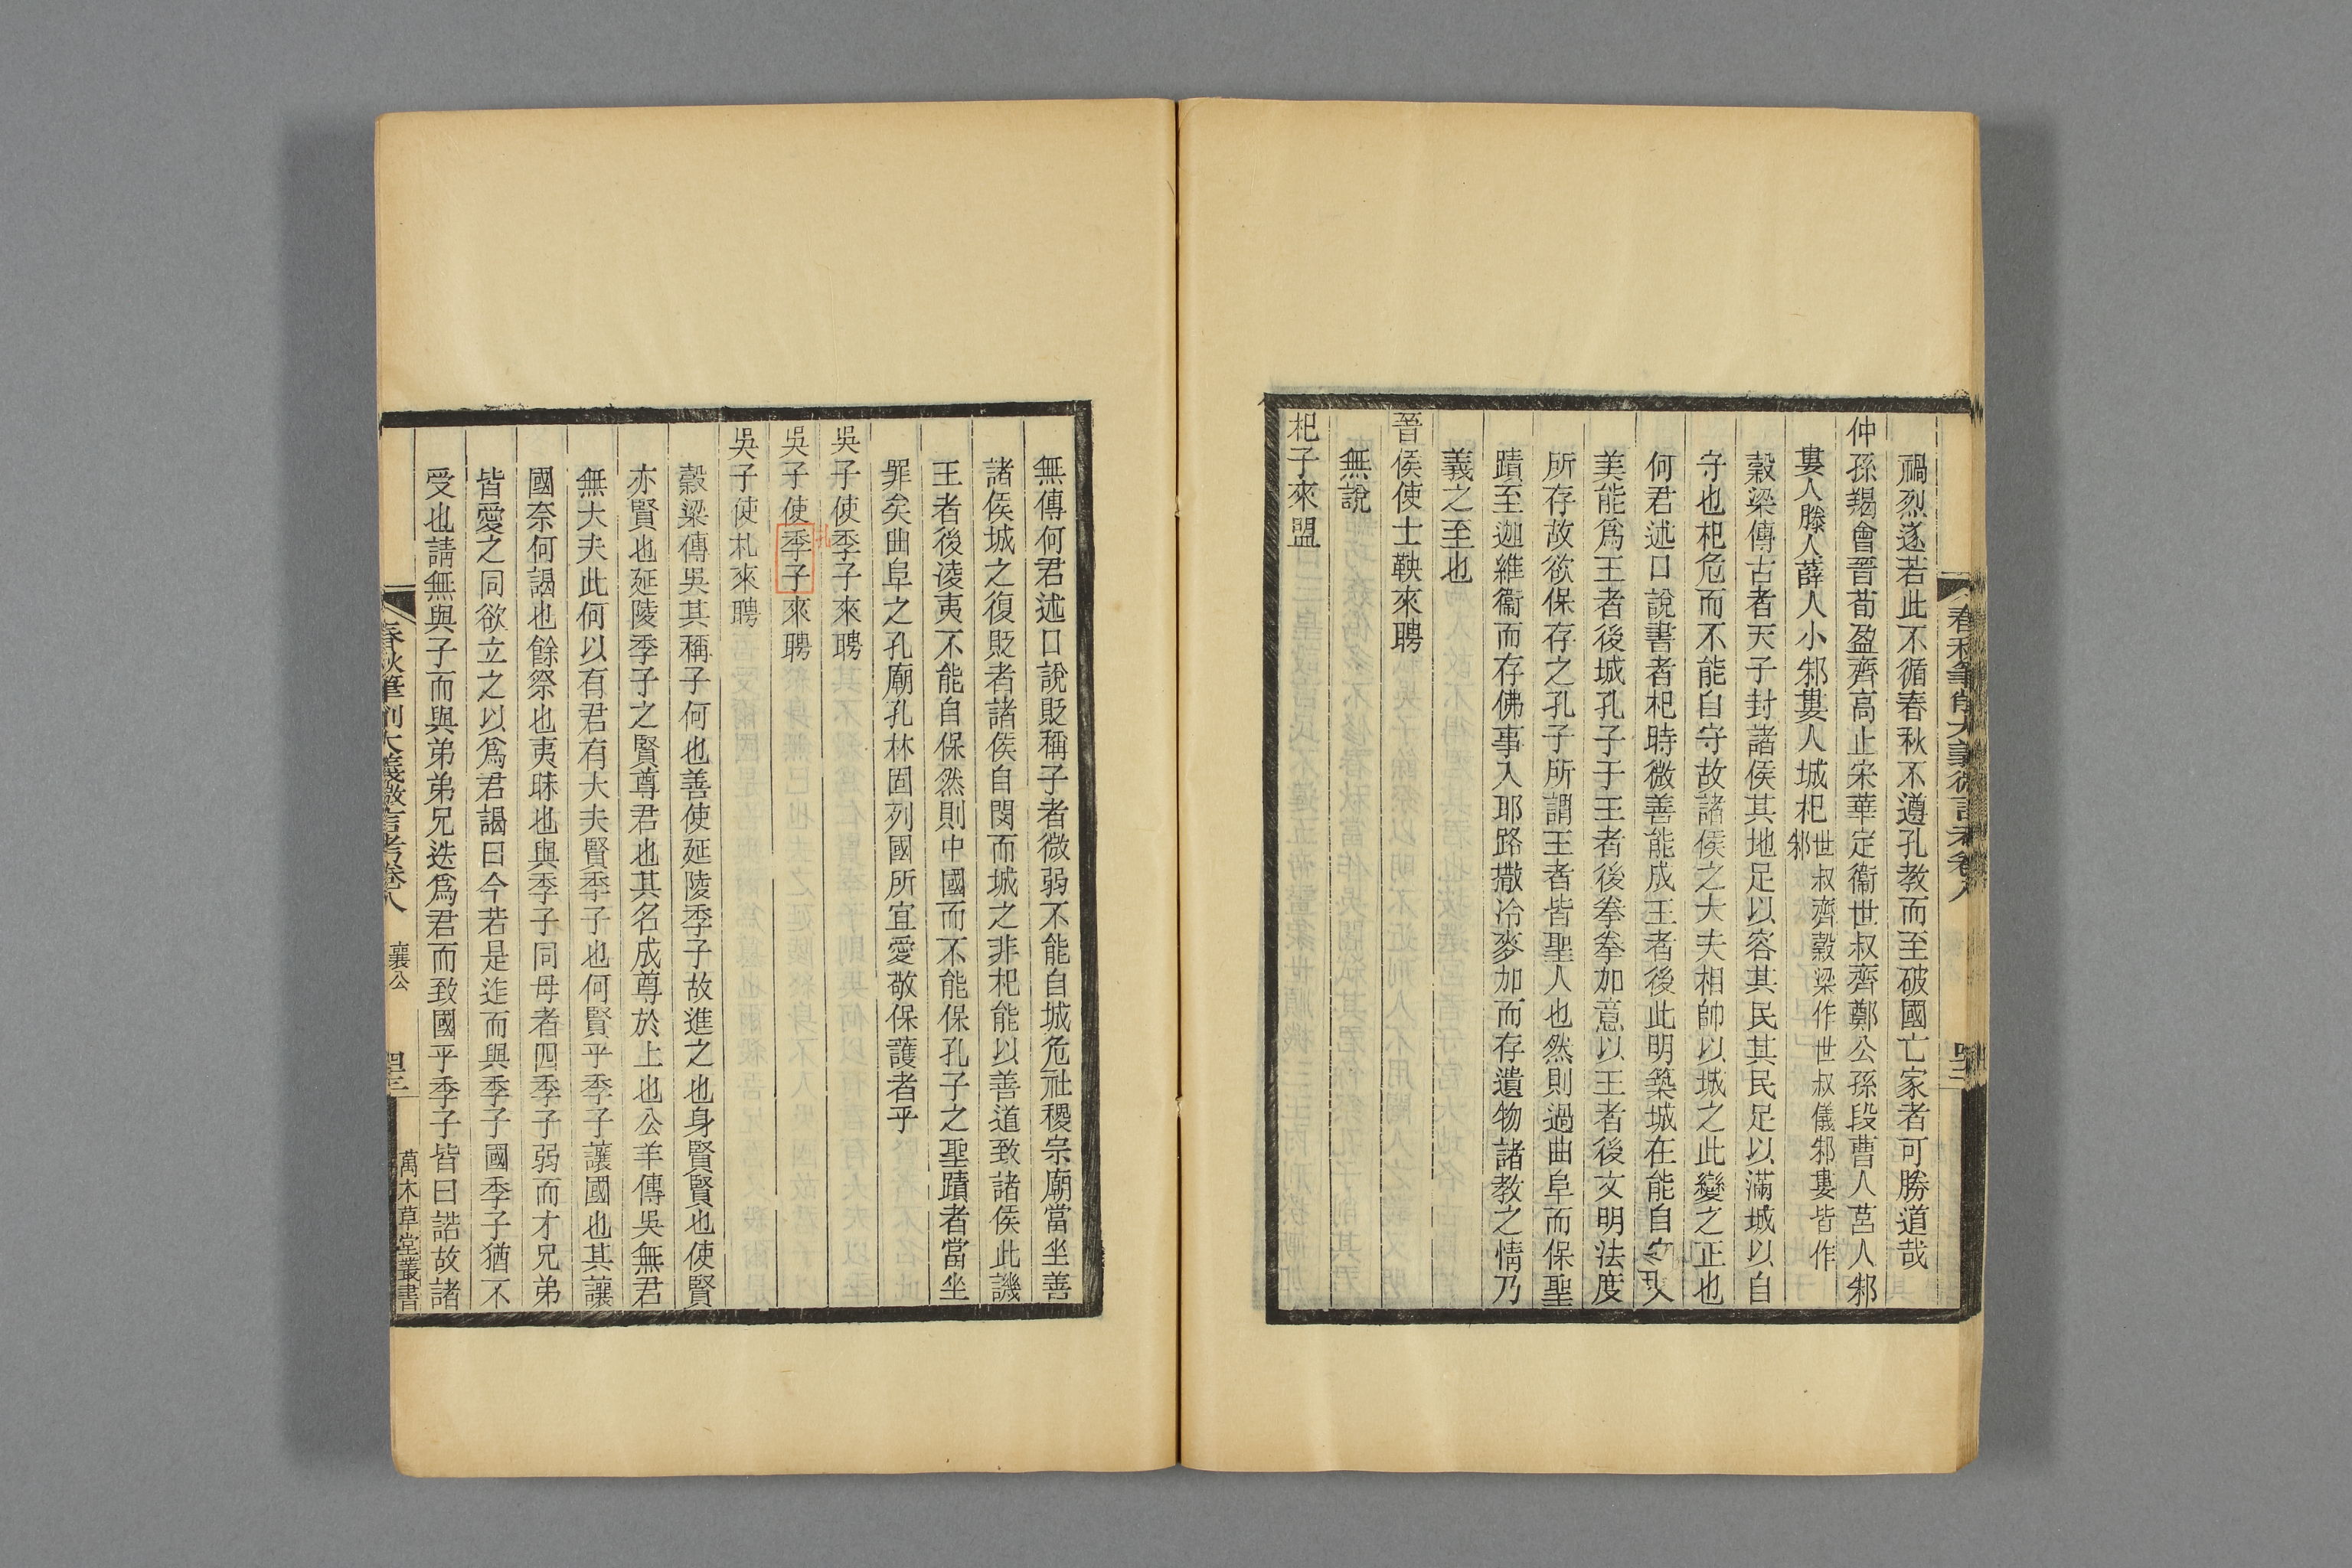 禍烈遂若此不循春秋不遵孔教而至破國亡家者可勝道哉
仲孫羯會晉荀盈齊高止宋華定衞世叔齊鄭公孫段曹人莒人邾
婁人滕人薛人小邾婁人城杞世叔齊穀梁作世叔儀邾婁皆作
邾
穀梁傳古者天子封諸侯其地足以容其民其民足以滿城以自
守也杞危而不能自守故諸侯之大夫相帥以城之此變之正也
何君述口說書者杞時微善能成王者後此明築城在能自守
美能爲王者後城孔子于王者後拳拳加意以王者後文明法度
所存故欲保存之孔子所謂王者皆聖人也然則過曲阜而保聖
蹟至迦維衞而存佛事入耶路撒冷麥加而存遺物諸教之情乃
義之至也
晉侯使士鞅來聘
無說
杞子來盟
無傳何君述口說貶稱子者微弱不能自城危社稷宗廟當坐善
諸侯城之復貶者諸侯自閔而城之非杞能以善道致諸侯此譏
王者後凌夷不能自保然則中國而不能保孔子之聖蹟者當坐
罪矣曲阜之孔廟孔林固列國所宜愛敬保護者乎
吳子使季子來聘
吳子使季子來聘
吳子使札來聘
穀梁傳吳其稱子何也善使延陵季子故進之也身賢賢也使賢
亦賢也延陵季子之賢尊君也其名成尊於上也公羊傳吳無君
無大夫此何以有君有大夫賢季子也何賢乎季子讓國也其讓
國奈何謁也餘祭也夷昧也與季子同母者四季子弱而才兄弟
皆愛之同欲立之以爲君謁曰今若是迮而與季子國季子猶不
受也請無與子而與弟弟兄迭爲君而致國乎季子皆曰諾故諸
春秋筆削大義微言考卷八 襄公
萬木草堂叢書